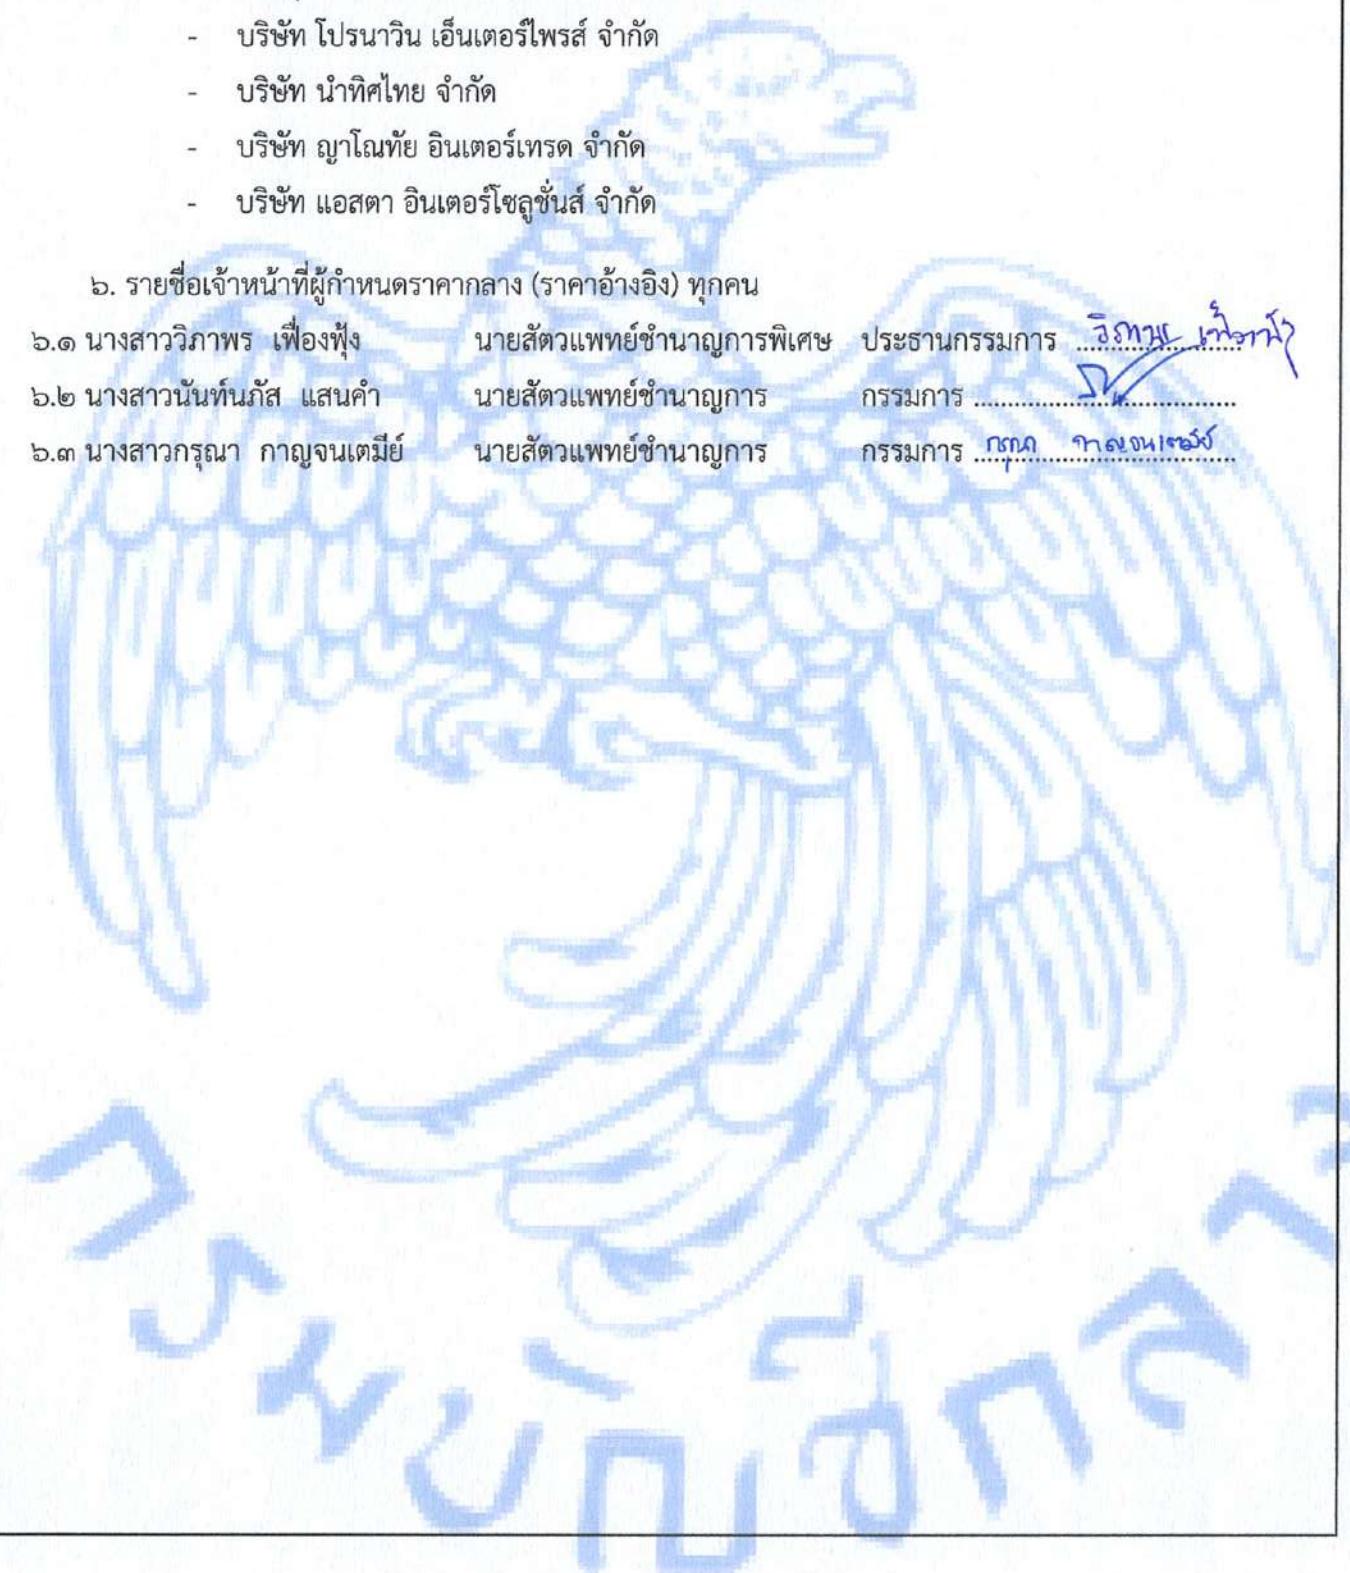 - บริษัท โปรนาวิน เอ็นเตอร์ไพรส์ จำกัด
- บริษัท นำทิศไทย จำกัด
- บริษัท ญาโณทัย อินเตอร์เทรด จำกัด
- บริษัท แอสตา อินเตอร์โซลูชั่นส์ จำกัด
๖. รายชื่อเจ้าหน้าที่ผู้กำหนดราคากลาง (ราคาอ้างอิง) ทุกคน
๖.๑ นางสาววิภาพร เฟื่องฟุ้ง นายสัตวแพทย์ชำนาญการพิเศษ ประธานกรรมการ วิภาพร เฟื่องฟุ้ง
๖.๒ นางสาวนันท์นภัส แสนคำ นายสัตวแพทย์ชำนาญการ กรรมการ ........................
๖.๓ นางสาวกรุณา กาญจนเตมีย์ นายสัตวแพทย์ชำนาญการ กรรมการ กรุณา กาญจนเตมีย์
กรมบัญชีกลาง